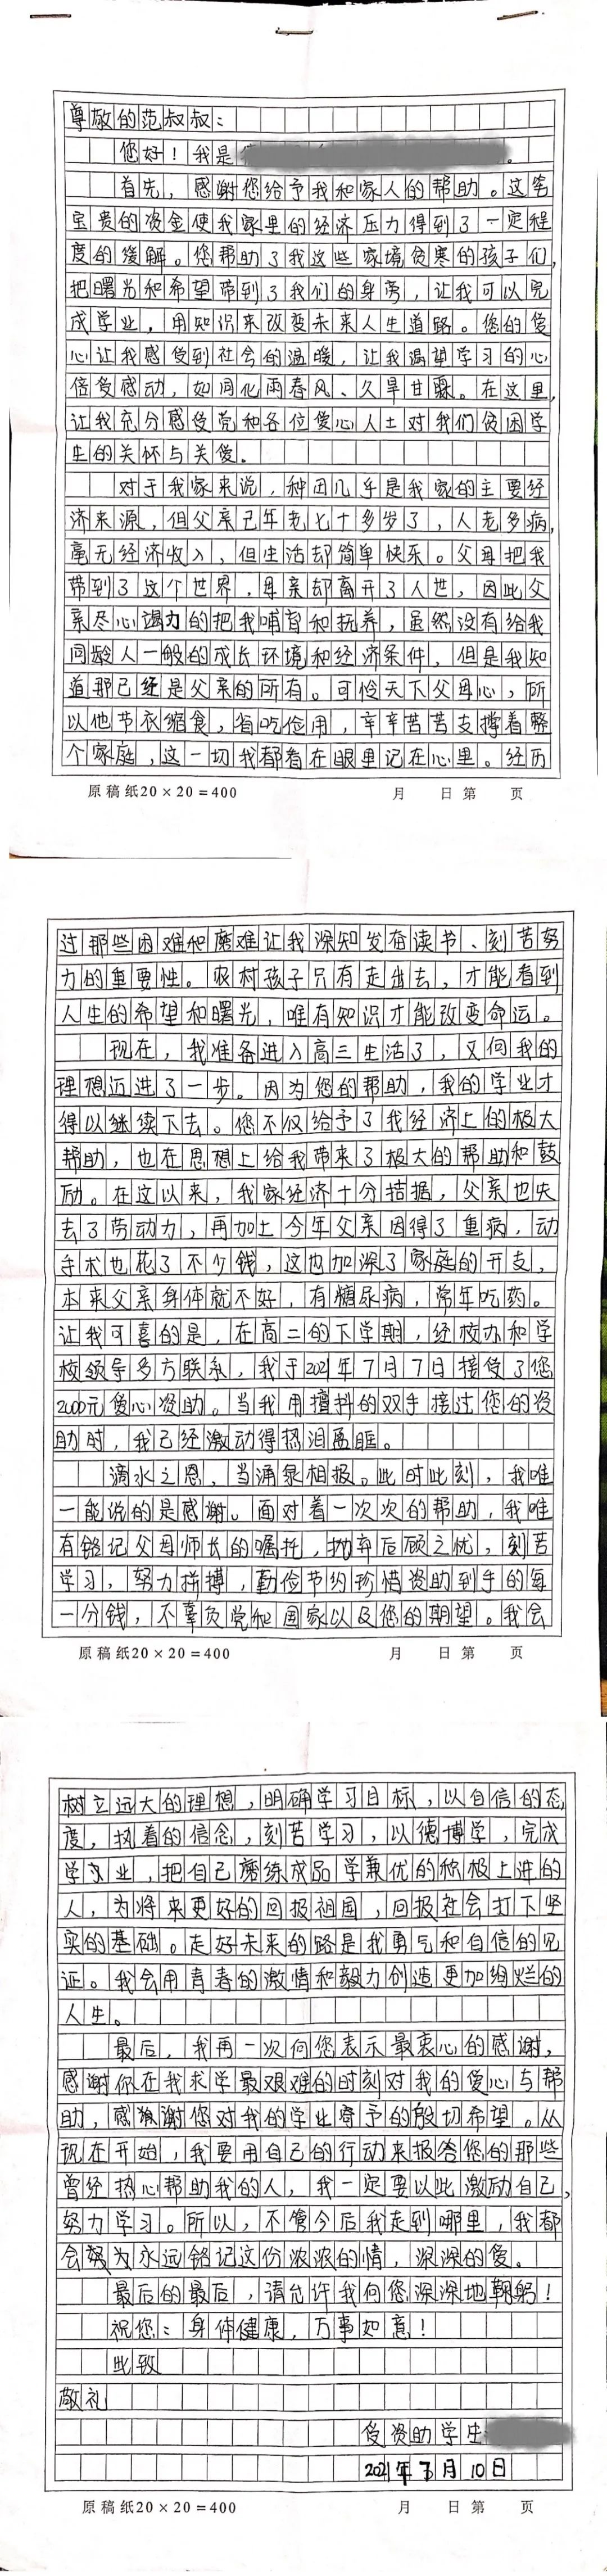 尊敬的范叔叔：
您好！我是
首先，感谢您给予我和家人的帮助。这笔
宝贵的资金使我家里的经济压力得到了一定程
度的缓解。您帮助了我这些家境贫寒的孩子们，
把曙光和希望带到了我们的身旁，让我可以完
成学业，用知识来改变未来人生道路。您的爱
心让我感受到社会的温暖，让我渴望学习的心
倍受感动，如同化雨春风、久旱甘霖。在这里，
让我充分感受党和各位爱心人士对我们贫困学
生的关怀与关爱。
对于我家来说，种田几乎是我家的主要经
济来源，但父亲已年老七十多岁了，人老多病，
毫无经济收入，但生活却简单快乐。父母把我
带到了这个世界，母亲却离开了人世，因此父
亲尽心竭力的把我哺育和抚养，虽然没有给我
同龄人一般的成长环境和经济条件，但是我知
道那已经是父亲的所有。可怜天下父母心，所
以他节衣缩食，省吃俭用，辛辛苦苦支撑着整
个家庭，这一切我都看在眼里记在心里。经历
原稿纸20×20=400 月 日 第 页
过那些困难和磨难让我深知发奋读书、刻苦努
力的重要性。农村孩子只有走出去，才能看到
人生的希望和曙光，唯有知识才能改变命运。
现在，我准备进入高三生活了，又向我的
理想迈进了一步。因为您的帮助，我的学业才
得以继续下去。您不仅给予了我经济上的极大
帮助，也在思想上给我带来了极大的帮助和鼓
励。在这以来，我家经济十分拮据，父亲也失
去了劳动力，再加上今年父亲因得了重病，动
手术也花了不少钱，这也加深了家庭的开支，
本来父亲身体就不好，有糖尿病，常年吃药。
让我可喜的是，在高二的下学期，经校办和学
校领导多方联系，我于2021年7月7日接受了您
2000元爱心资助。当我用擅抖的双手接过您的资
助时，我已经激动得热泪盈眶。
滴水之恩，当涌泉相报。此时此刻，我唯
一能说的是感谢。面对着一次次的帮助，我唯
有铭记父母师长的嘱托，抛弃后顾之忧，刻苦
学习，努力拼搏，勤俭节约珍惜资助到手的每
一分钱，不辜负党和国家以及您的期望。我会
原稿纸20×20=400 月 日 第 页
树立远大的理想，明确学习目标，以自信的态
度，执着的信念，刻苦学习，以德博学，完成
学业，把自己磨练成品学兼优的积极上进的
人，为将来更好的回报祖国，回报社会打下坚
实的基础。走好未来的路是我勇气和自信的见
证。我会用青春的激情和毅力创造更加绚烂的
人生。
最后，我再一次向您表示最衷心的感谢，
感谢你在我求学最艰难的时刻对我的爱心与帮
助，感谢您对我的学业寄予的殷切希望。从
现在开始，我要用自己的行动来报答您的那些
曾经热心帮助我的人，我一定要以此激励自己，
努力学习。所以，不管今后我走到哪里，我都
会永远铭记这份浓浓的情，深深的爱。
最后的最后，请允许我向您深深地鞠躬！
祝您：身体健康，万事如意！
此致
敬礼
受资助学生
2021年 月10日
原稿纸20×20=400 月 日 第 页